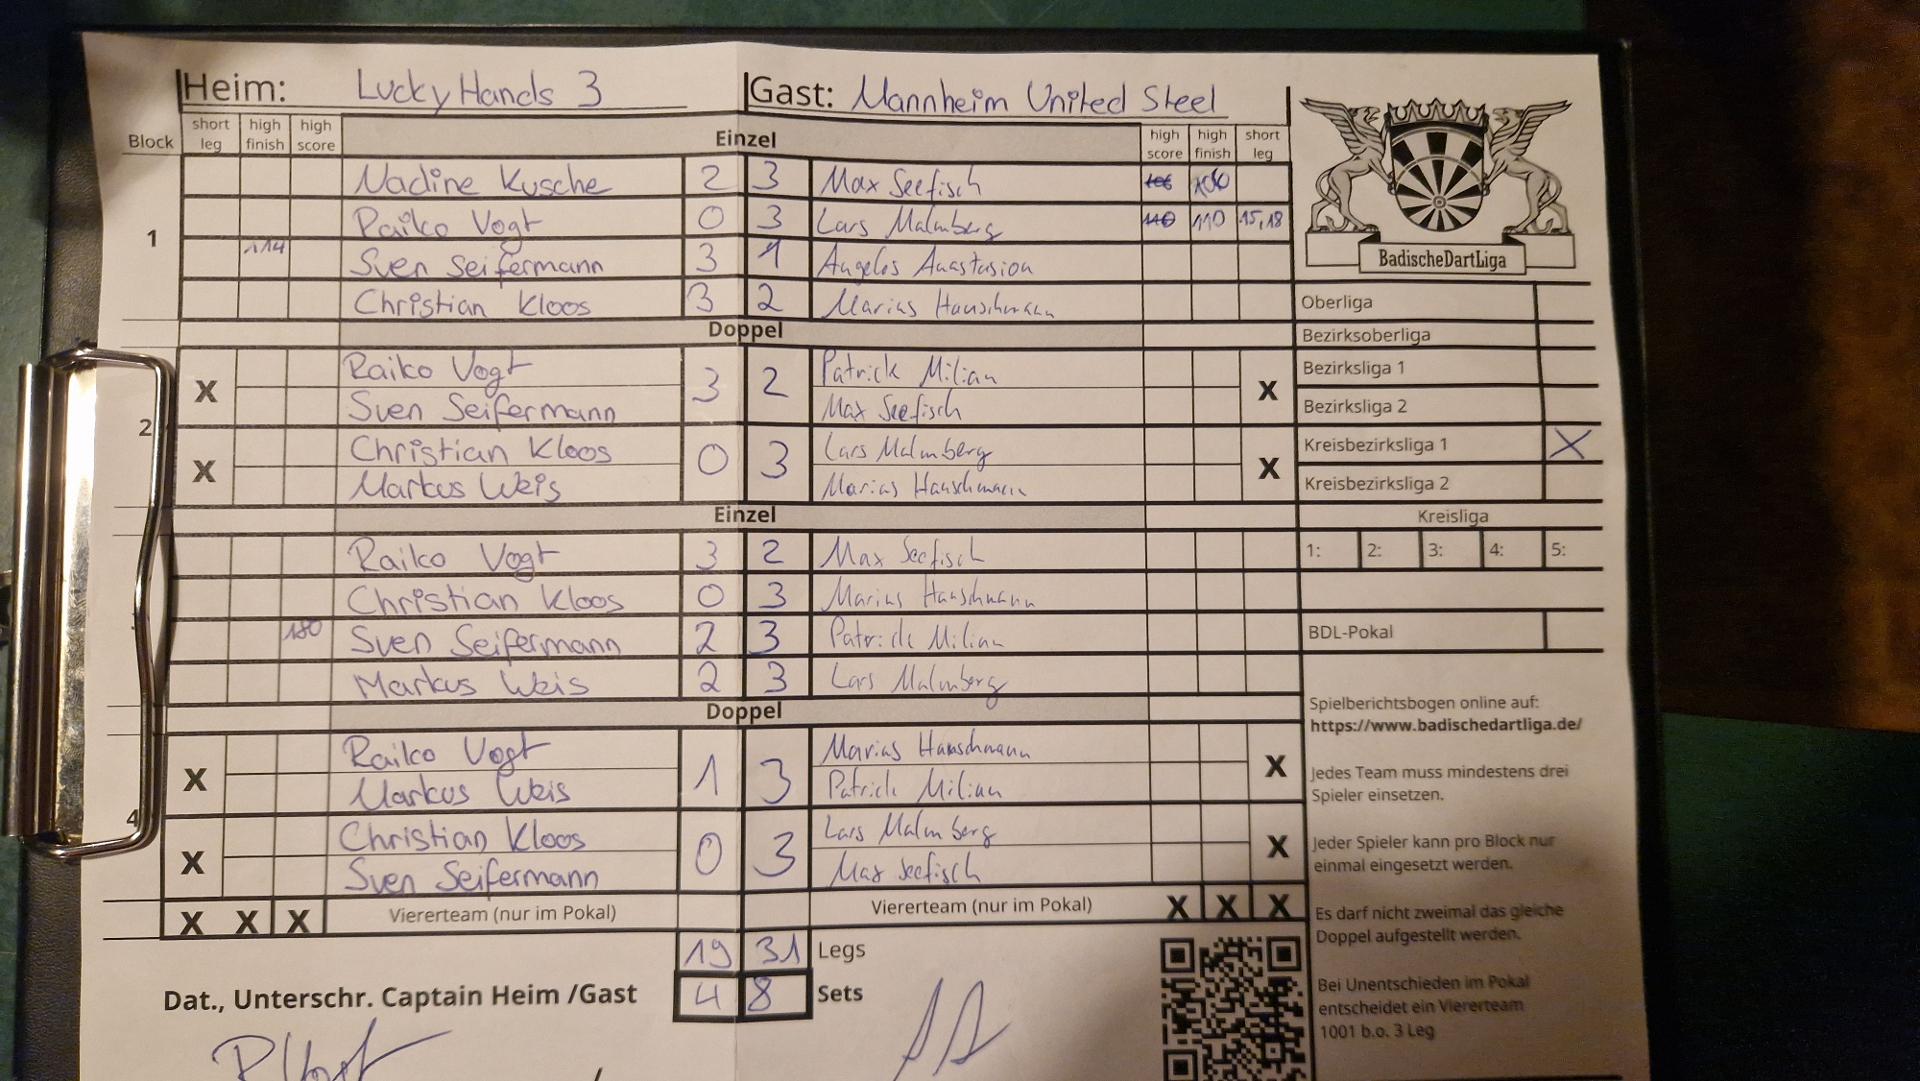 Heim: Lucky Hands 3 Gast: Mannheim United Steel
Block short leg high finish high score Einzel high score high finish short leg
1
Nadine Kusche 2 3 Max Seefisch
Raiko Vogt 0 3 Lars Malmberg 110 110 15,18
114 Sven Seifermann 3 1 Angelos Anastasion
Christian Kloos 3 2 Marius Hanschmann
Doppel
2
X Raiko Vogt 3 2 Patrick Milian X
Sven Seifermann Max Seefisch
X Christian Kloos 0 3 Lars Malmberg X
Markus Weis Marius Hanschmann
Einzel
Raiko Vogt 3 2 Max Seefisch
Christian Kloos 0 3 Marius Hanschmann
180 Sven Seifermann 2 3 Patrick Milian
Markus Weis 2 3 Lars Malmberg
Doppel
4
X Raiko Vogt 1 3 Marius Hanschmann X
Markus Weis Patrick Milian
X Christian Kloos 0 3 Lars Malmberg X
Sven Seifermann Max Seefisch
X X X Viererteam (nur im Pokal) Viererteam (nur im Pokal) X X X
19 31 Legs
Dat., Unterschr. Captain Heim /Gast 4 8 Sets
BadischeDartLiga
Oberliga
Bezirksoberliga
Bezirksliga 1
Bezirksliga 2
Kreisbezirksliga 1 X
Kreisbezirksliga 2
Kreisliga
1: 2: 3: 4: 5:
BDL-Pokal
Spielberichtsbogen online auf:
https://www.badischedartliga.de/
Jedes Team muss mindestens drei
Spieler einsetzen.
Jeder Spieler kann pro Block nur
einmal eingesetzt werden.
Es darf nicht zweimal das gleiche
Doppel aufgestellt werden.
Bei Unentschieden im Pokal
entscheidet ein Viererteam
1001 b.o. 3 Leg